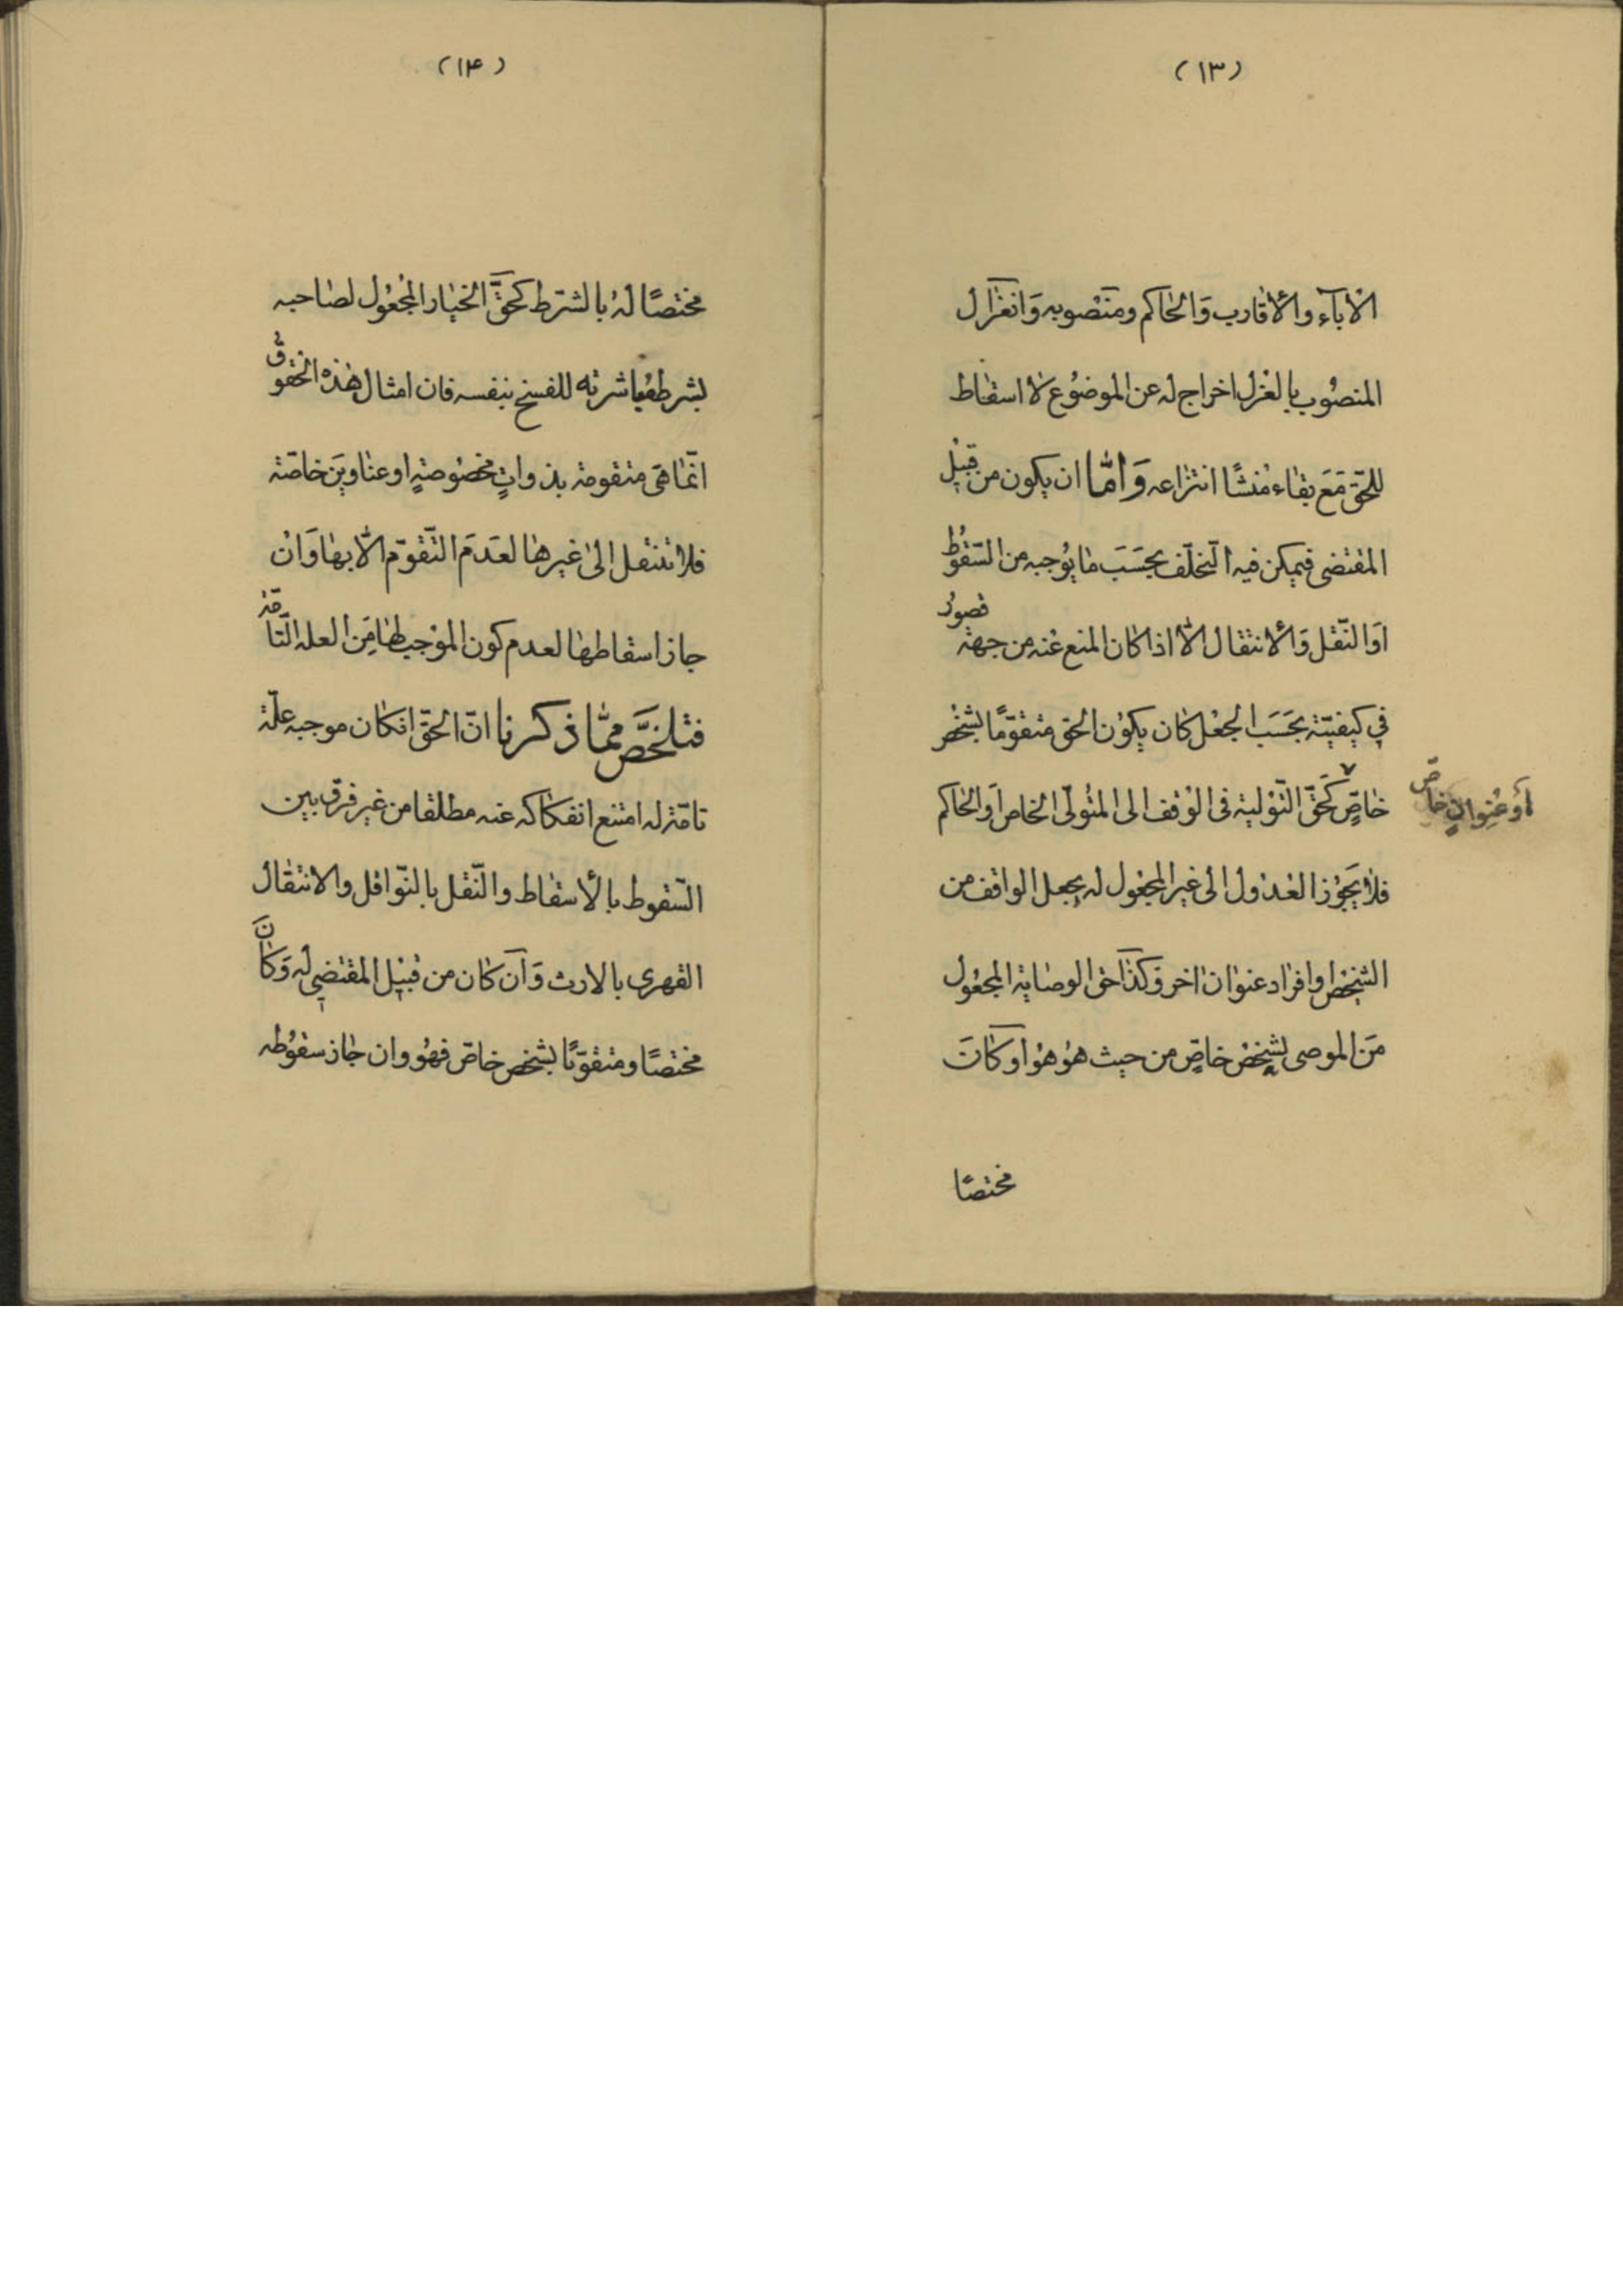 (١٣)
الأباۤء والأقارب وَالحاكم ومَنصوبه وَانعزال
المنصُوب بالعزل اخراج له عن الموضوع لا اسقاط
للحقّ مَعَ بقاء مُنشأ انتزاعه وَامّا ان يكون من قبيل
المقتضى فيمكن فيه التّخلّف بحَسَبَ ما يُوجبه من السّقوُط
اوَ النّقل وَالأنتقال الّا اذا كان المنع عنه من جهة قصورٍ
في كيفيّته بحَسَبَ الجعْل كان يكوُن الحق متقوّمًا بشخصٍ
خاصٍّ كحَقّ التّوْلية فى الوْقف الى المتُولّى الخاص اَو الحاكم
أو عُنِوانٍ خاصّ
فلا يَجوُز العدُول الى غير المجعُول له بجعل الواقف من
الشخص او افراد عنوان اخر وَكذا حق الوصاية المجعُول
مَن الموصى لشخص خاصٍّ من حيث هوُ هوُ او كانَ
مختصًا
(١۴)
مختصًا لهُ بالشرط كحَقّ الخيار المجعُول لصاحبه
بشرط مباشرته للفسخ بنفسه فان امثال هذه الحقوق
انّما هى متقومة بذواتٍ مخصُوصةٍ او عناوينَ خاصّة
فلا تنتقل الىٰ غيرها لعَدَم التّقوّم الّا بها وَانْ
جاز اسقاطها لعدم كون الموْجب لها مِنَ العله التّامّة
فتلخَّصَ ممّا ذكرنا انّ الحقّ انكان موجبه علّة
تامّة له امتنع انفكاكه عنه مطلقا من غير فرق بين
السّقوط بالأسقاط والنّقل بالنّواقل والانتقال
القهرى بالارث وَان كان من قبيل المقتضِي له وَكانَ
مختصًا ومتقوّمًا بشخص خاصّ فهُو وان جاز سقوُطه